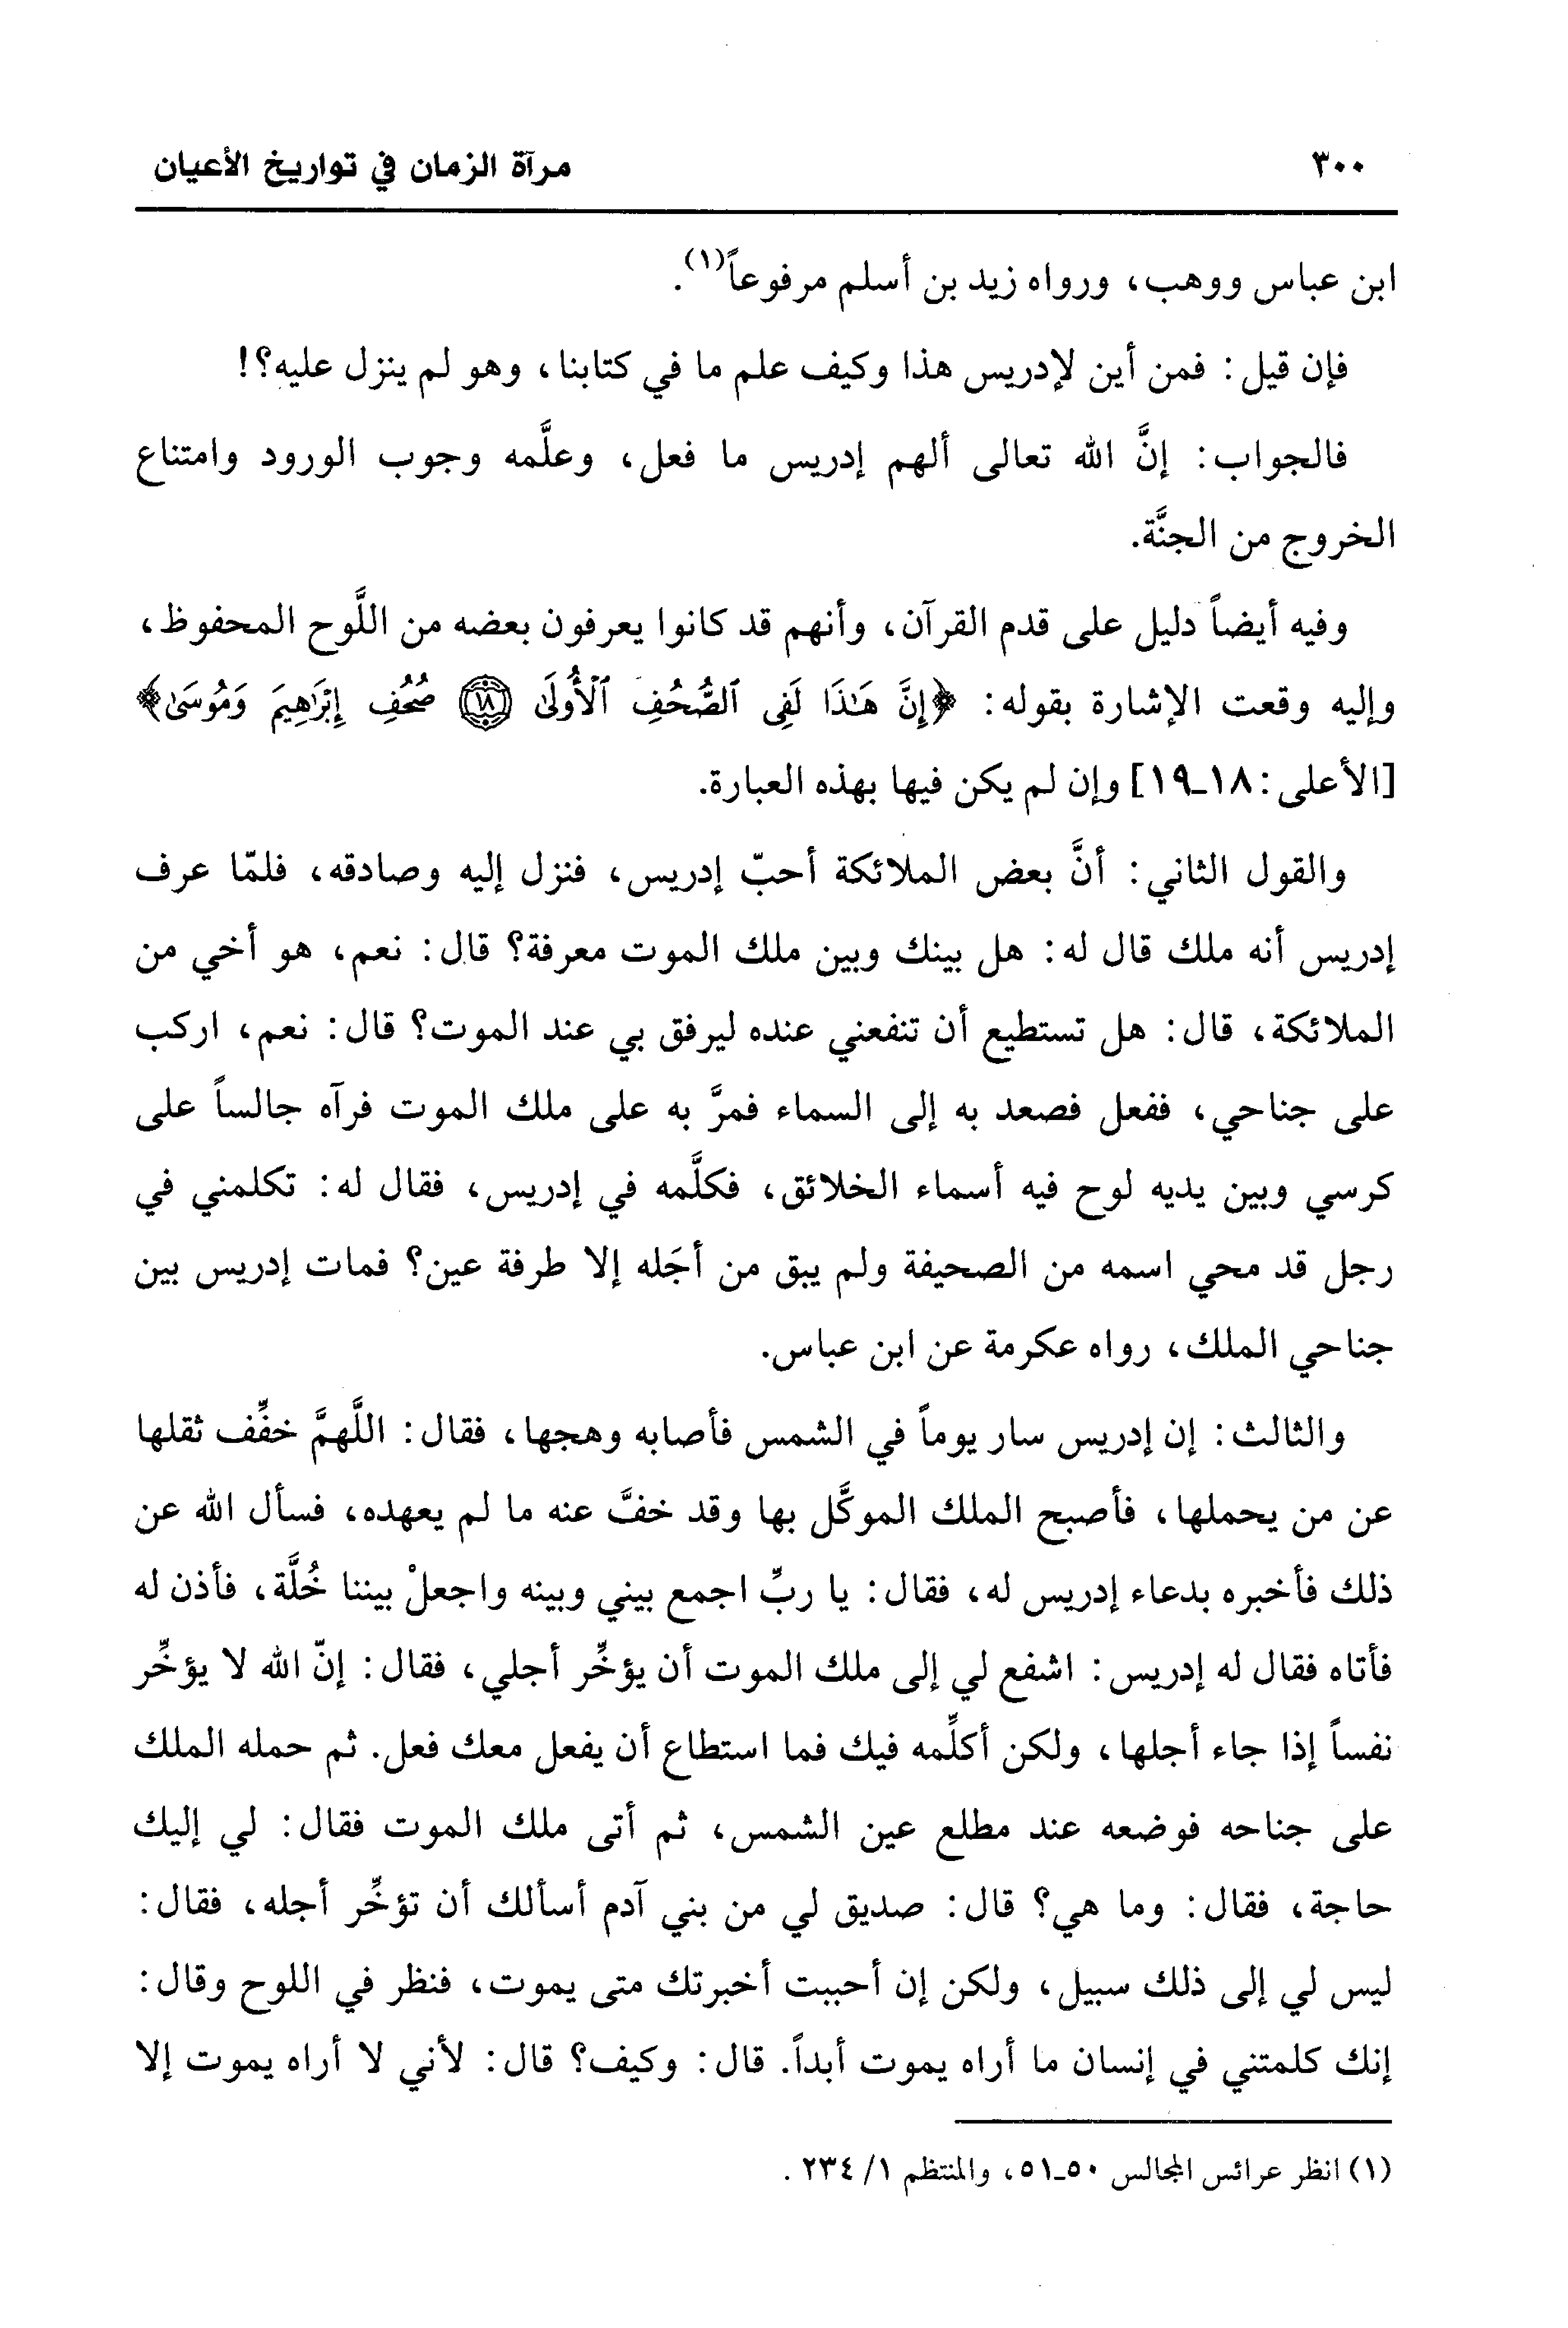 ٣٠٠ مرآة الزمان في تواريخ الأعيان
ابن عباس ووهب، ورواه زيد بن أسلم مرفوعاً(١).
فإن قيل: فمن أين لإدريس هذا وكيف علم ما في كتابنا، وهو لم ينزل عليه؟!
فالجواب: إنَّ الله تعالى ألهم إدريس ما فعل، وعلَّمه وجوب الورود وامتناع
الخروج من الجنَّة.
وفيه أيضاً دليل على قدم القرآن، وأنهم قد كانوا يعرفون بعضه من اللَّوح المحفوظ،
وإليه وقعت الإشارة بقوله: ﴿إِنَّ هَٰذَا لَفِى ٱلصُّحُفِ ٱلْأُولَىٰ ١٨ صُحُفِ إِبْرَٰهِيمَ وَمُوسَىٰ﴾
[الأعلى: ١٨ـ١٩] وإن لم يكن فيها بهذه العبارة.
والقول الثاني: أنَّ بعض الملائكة أحبّ إدريس، فنزل إليه وصادقه، فلمّا عرف
إدريس أنه ملك قال له: هل بينك وبين ملك الموت معرفة؟ قال: نعم، هو أخي من
الملائكة، قال: هل تستطيع أن تنفعني عنده ليرفق بي عند الموت؟ قال: نعم، اركب
على جناحي، ففعل فصعد به إلى السماء فمرَّ به على ملك الموت فرآه جالساً على
كرسي وبين يديه لوح فيه أسماء الخلائق، فكلَّمه في إدريس، فقال له: تكلمني في
رجل قد محي اسمه من الصحيفة ولم يبق من أجَله إلا طرفة عين؟ فمات إدريس بين
جناحي الملك، رواه عكرمة عن ابن عباس.
والثالث: إن إدريس سار يوماً في الشمس فأصابه وهجها، فقال: اللَّهمَّ خفِّف ثقلها
عن من يحملها، فأصبح الملك الموكَّل بها وقد خفَّ عنه ما لم يعهده، فسأل الله عن
ذلك فأخبره بدعاء إدريس له، فقال: يا ربِّ اجمع بيني وبينه واجعلْ بيننا خُلَّة، فأذن له
فأتاه فقال له إدريس: اشفع لي إلى ملك الموت أن يؤخِّر أجلي، فقال: إنّ الله لا يؤخِّر
نفساً إذا جاء أجلها، ولكن أكلِّمه فيك فما استطاع أن يفعل معك فعل. ثم حمله الملك
على جناحه فوضعه عند مطلع عين الشمس، ثم أتى ملك الموت فقال: لي إليك
حاجة، فقال: وما هي؟ قال: صديق لي من بني آدم أسألك أن تؤخِّر أجله، فقال:
ليس لي إلى ذلك سبيل، ولكن إن أحببت أخبرتك متى يموت، فنظر في اللوح وقال:
إنك كلمتني في إنسان ما أراه يموت أبداً. قال: وكيف؟ قال: لأني لا أراه يموت إلا
(١) انظر عرائس المجالس ٥٠ـ٥١، والمنتظم ١/ ٢٣٤ .